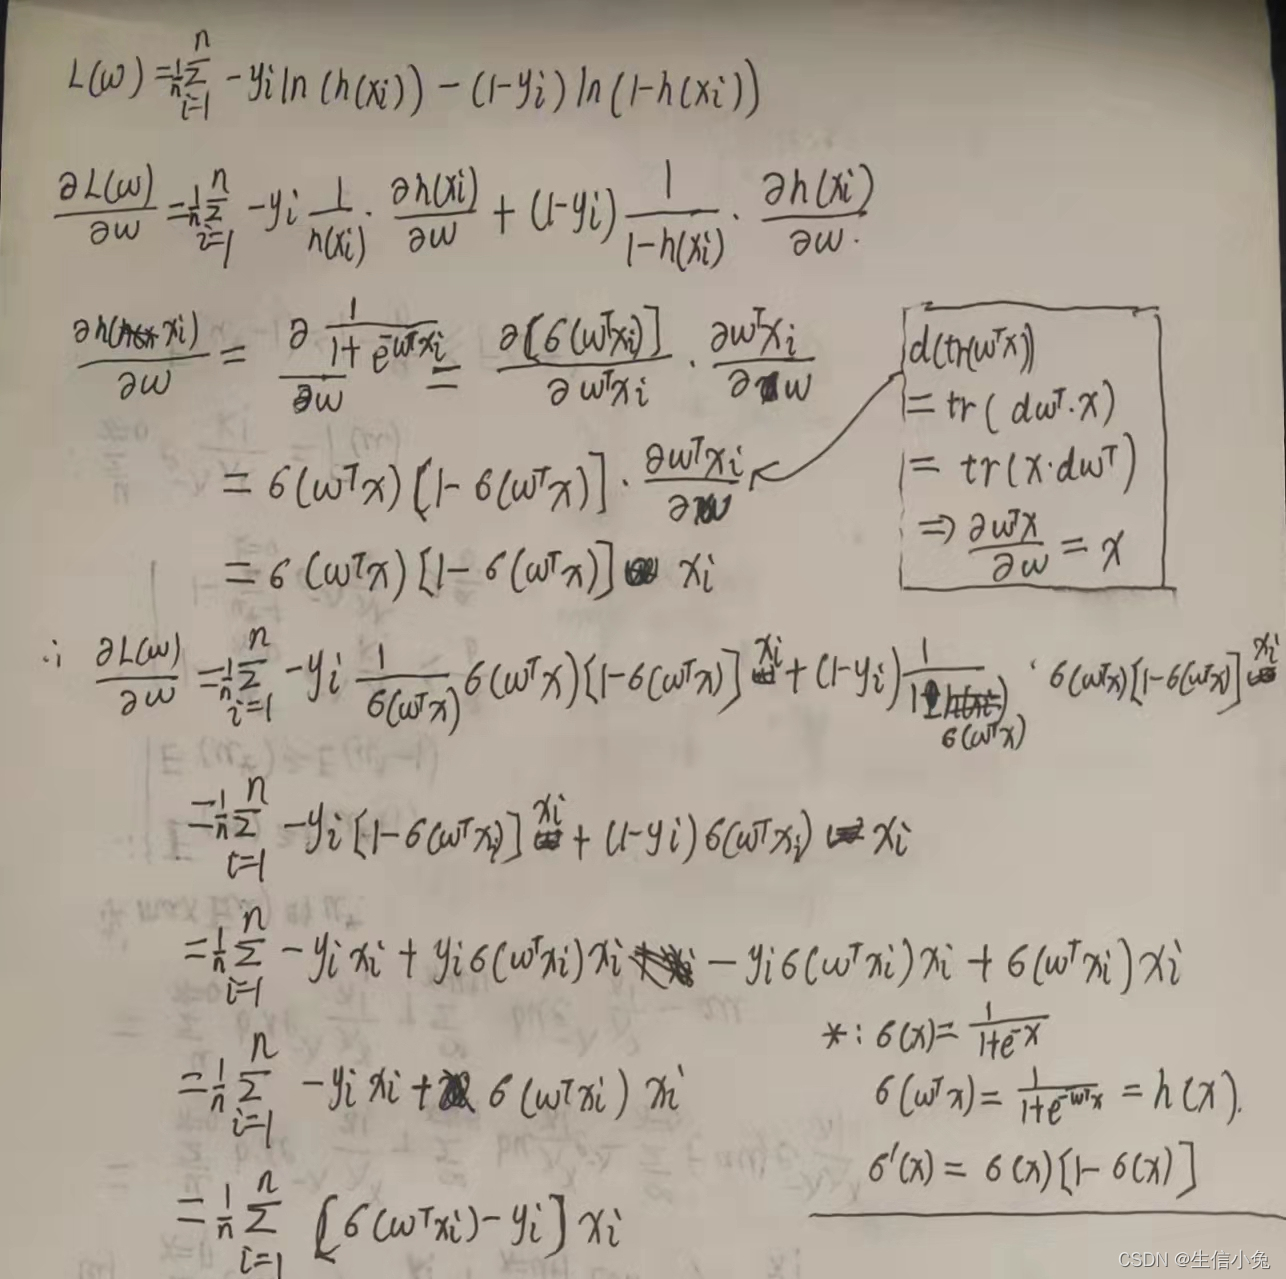 L(w) = 1/n Σ_{i=1}^{n} -yi ln(h(xi)) - (1-yi) ln(1-h(xi))
∂L(w)/∂w = 1/n Σ_{i=1}^{n} -yi 1/h(xi) · ∂h(xi)/∂w + (1-yi) 1/(1-h(xi)) · ∂h(xi)/∂w.
∂h(xi)/∂w = ∂ 1/(1+e^{-wᵀxi}) / ∂w = ∂[σ(wᵀxi)]/∂wᵀxi · ∂wᵀxi/∂w
= σ(wᵀx)[1-σ(wᵀx)] · ∂wᵀxi/∂w
= σ(wᵀx)[1-σ(wᵀx)] xi
d(tr(wᵀx))
= tr(dwᵀ·x)
= tr(x·dwᵀ)
⇒ ∂wᵀx/∂w = x
∴ ∂L(w)/∂w = 1/n Σ_{i=1}^{n} -yi 1/σ(wᵀx) σ(wᵀx)[1-σ(wᵀx)] xi + (1-yi) 1/(1-σ(wᵀx)) · σ(wᵀx)[1-σ(wᵀx)] xi
= 1/n Σ_{i=1}^{n} -yi[1-σ(wᵀxi)] xi + (1-yi)σ(wᵀxi) xi
= 1/n Σ_{i=1}^{n} -yi xi + yiσ(wᵀxi)xi - yiσ(wᵀxi)xi + σ(wᵀxi)xi
= 1/n Σ_{i=1}^{n} -yi xi + σ(wᵀxi) xi
= 1/n Σ_{i=1}^{n} [σ(wᵀxi)-yi] xi
*: σ(x) = 1/(1+e^{-x})
σ(wᵀx) = 1/(1+e^{-wᵀx}) = h(x).
σ'(x) = σ(x)[1-σ(x)]
CSDN @生信小兔